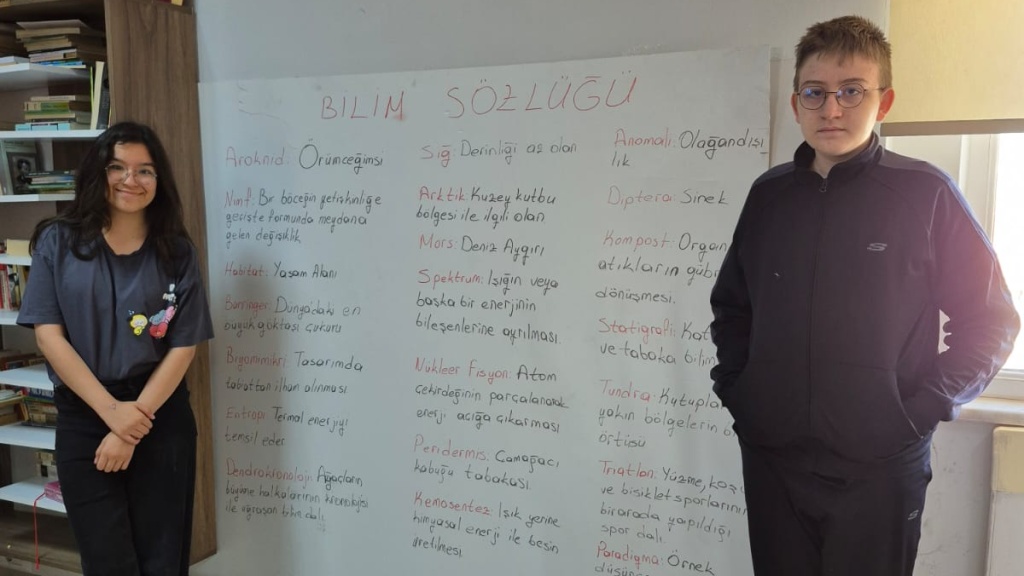 BİLİM SÖZLÜĞÜ
Araknid: Örümceğimsi
Nimf: Bir böceğin yetişkinliğe
geçişte formunda meydana
gelen değişiklik
Habitat: Yaşam Alanı
Barringer: Dünya'daki en
büyük göktaşı çukuru
Biyomimikri Tasarımda
tabiattan ilham alınması
Entropi: Termal enerjiyi
temsil eder
Dendrokronoloji: Ağaçların
büyüme halkalarının kronolojisi
ile uğraşan bilim dalı
Sığ: Derinliği az olan
Arktik Kuzey kutbu
bölgesi ile ilgili olan
Mors: Deniz Aygırı
Spektrum: Işığın veya
başka bir enerjinin
bileşenlerine ayrılması.
Nükleer Fisyon: Atom
çekirdeğinin parçalanarak
enerji açığa çıkarması
Peridermis: Çamağacı
kabuğu tabakası.
Kemosentez: Işık yerine
kimyasal enerji ile besin
üretilmesi
Anomali: Olağandışı
lık
Diptera: Sinek
Kompost: Organ
atıkların gübr
dönüşmesi.
Statigrafi: Kat
ve tabaka bilim
Tundra: Kutupla
yakın bölgelerin b
örtüsü
Triatlon: Yüzme, koş
ve bisiklet sporlarının
birarada yapıldığı
spor dalı.
Paradigma: Örnek